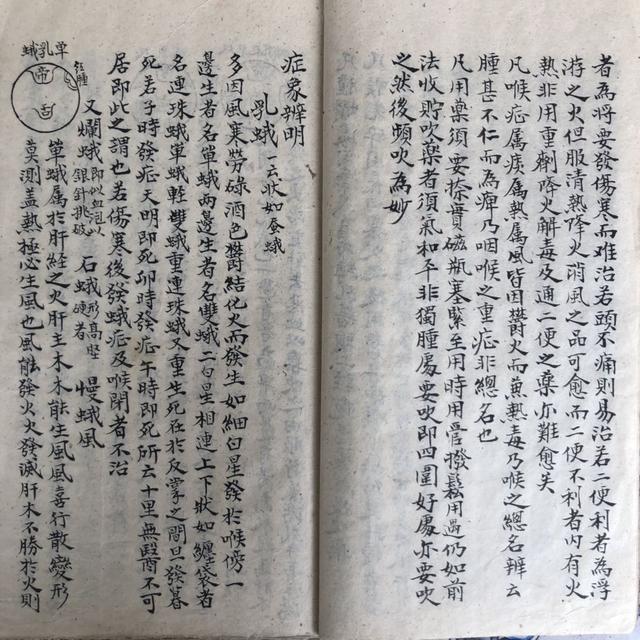 者為將要發傷寒而难治若頭不痛則易治若二便利者為浮
游之火但服清熱降火消風之品可愈而二便不利者内有火
熱非用重劑降火解毒及通二便之藥亦難愈矣
凡喉症属痰属熱属風皆因欝火而蕉熱毒乃喉之總名辨云
腫甚不仁而為痺乃咽喉之重症非總名也
凡用藥須要捺實磁瓶塞緊至用時用管撥鬆用過仍如前
法收貯吹藥者須氣和平非獨腫處要吹即四圍好處亦要吹
之然後頻吹為妙
症象辨明
乳蛾 一云状如蚕蛾
多因風寒勞碌酒色欝結化火而發生如細白星發於喉傍一
邊生者名單蛾兩邊生者名雙蛾二白星相連上下状如纏袋者
名連珠蛾單蛾輕雙蛾重連珠蛾又重生死在於反掌之間旦發暮
死若子時發症天明即死卯時發症午時即死所云十里無醫不可
居即此之謂也若傷寒後發蛾症及喉閉者不治
單乳蛾
紅腫
帝
舌
又爛蛾 即似血泡以銀針挑破 石蛾 形高堅硬者 慢蛾風
單蛾属於肝經之火肝主木木能生風風喜行散變形
莫測盖熱極必生風也風能發火火發滅肝木不勝於火則